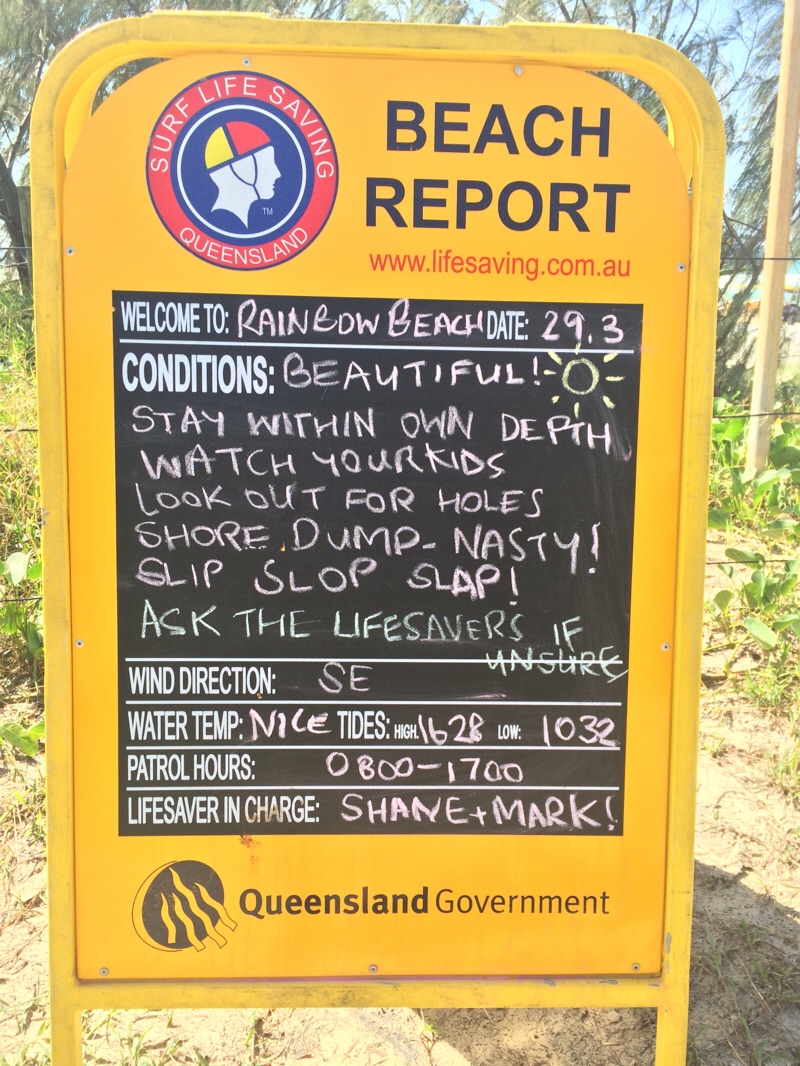 SURF LIFE SAVING
QUEENSLAND
TM
BEACH
REPORT
www.lifesaving.com.au
WELCOME TO: RAINBOW BEACH DATE: 29.3
CONDITIONS: BEAUTIFUL!
STAY WITHIN OWN DEPTH
WATCH YOUR KIDS
LOOK OUT FOR HOLES
SHORE DUMP - NASTY!
SLIP SLOP SLAP!
ASK THE LIFESAVERS IF
UNSURE
WIND DIRECTION: SE
WATER TEMP: NICE TIDES: HIGH: 1628 LOW: 1032
PATROL HOURS: 0800-1700
LIFESAVER IN CHARGE: SHANE + MARK!
Queensland Government